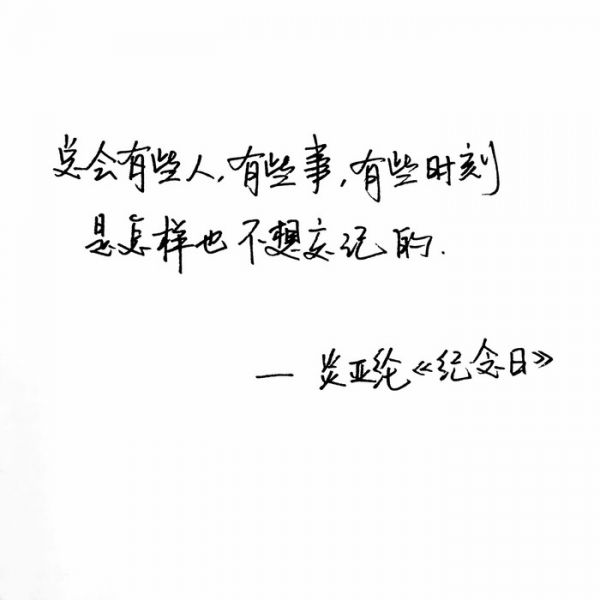 总会有些人,有些事,有些时刻
是怎样也不想忘记的.
— 炎亚纶《纪念日》